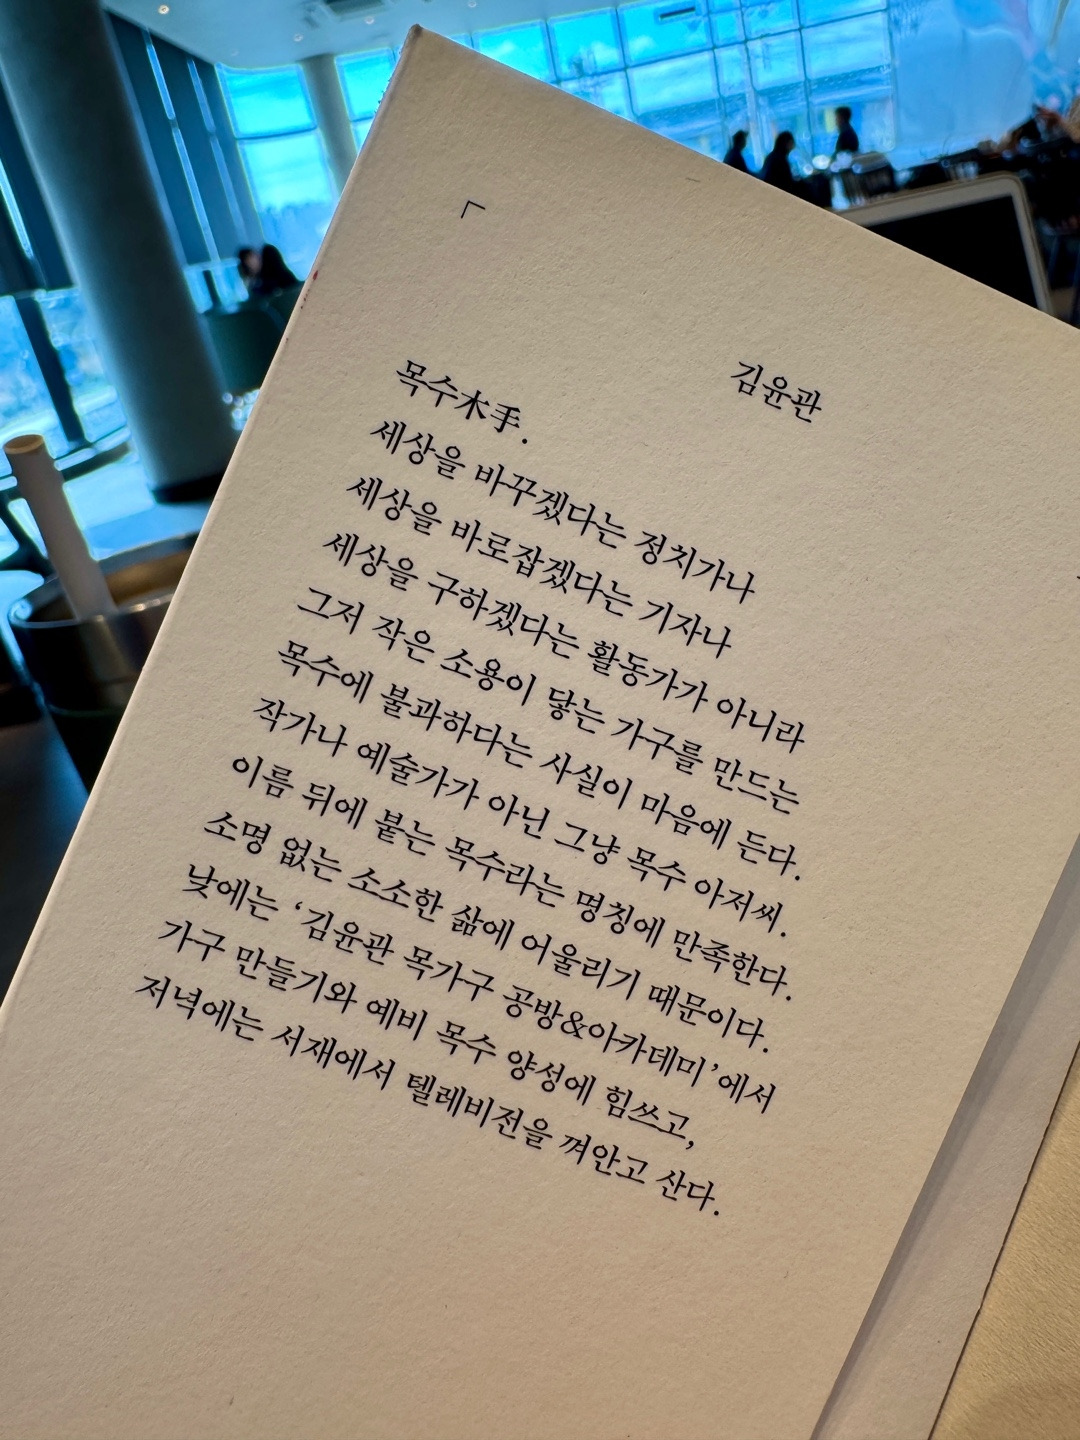 김윤관
목수木手.
세상을 바꾸겠다는 정치가나
세상을 바로잡겠다는 기자나
세상을 구하겠다는 활동가가 아니라
그저 작은 소용이 닿는 가구를 만드는
목수에 불과하다는 사실이 마음에 든다.
작가나 예술가가 아닌 그냥 목수 아저씨.
이름 뒤에 붙는 목수라는 명칭에 만족한다.
소명 없는 소소한 삶에 어울리기 때문이다.
낮에는 ‘김윤관 목가구 공방&아카데미’에서
가구 만들기와 예비 목수 양성에 힘쓰고,
저녁에는 서재에서 텔레비전을 껴안고 산다.